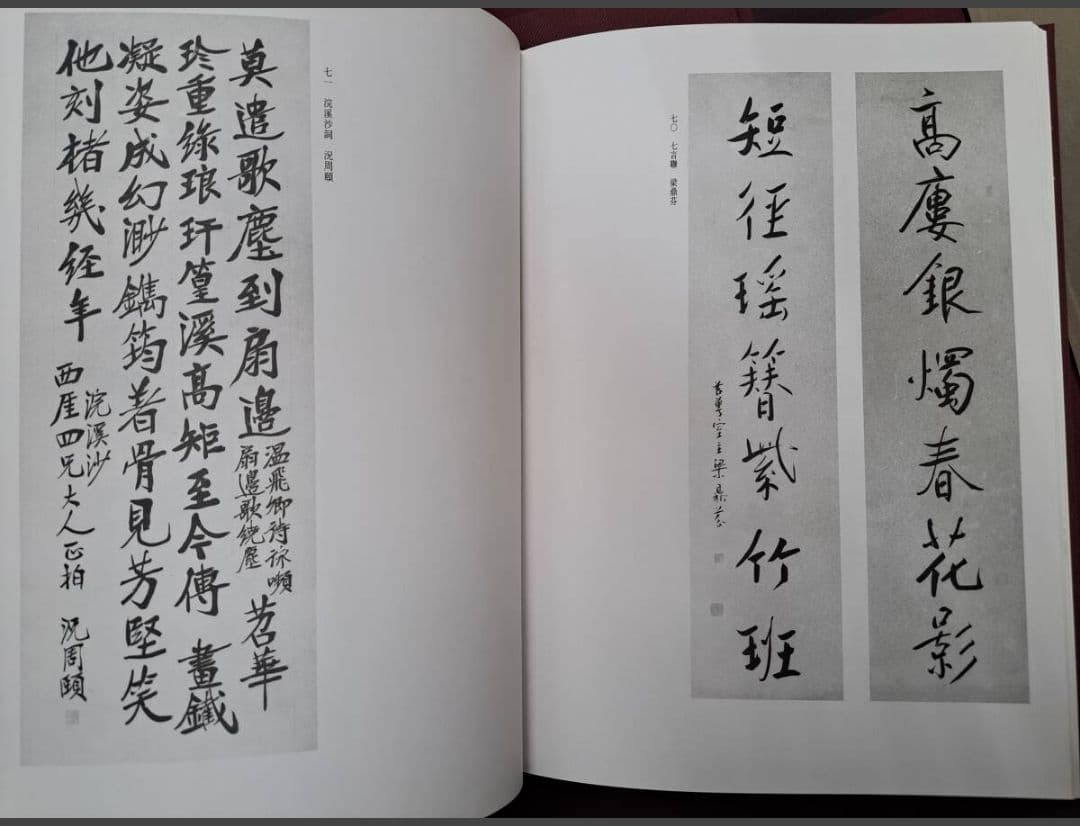 高廔銀燭春花影
短徑瑶簪紫竹班
空主梁鼎芬
七〇 七言聯 梁鼎芬
七一 浣溪沙詞 況周頤
莫遣歌塵到扇邊
溫飛卿詩
扇邊歌繞塵
苕華
珍重綠琅玕篁溪高矩至今傳 畫鐵
凝姿成幻渺鐫筠着骨見芳堅笑
他刻楮幾經年
浣溪沙
西厓四兄大人正拍 況周頤